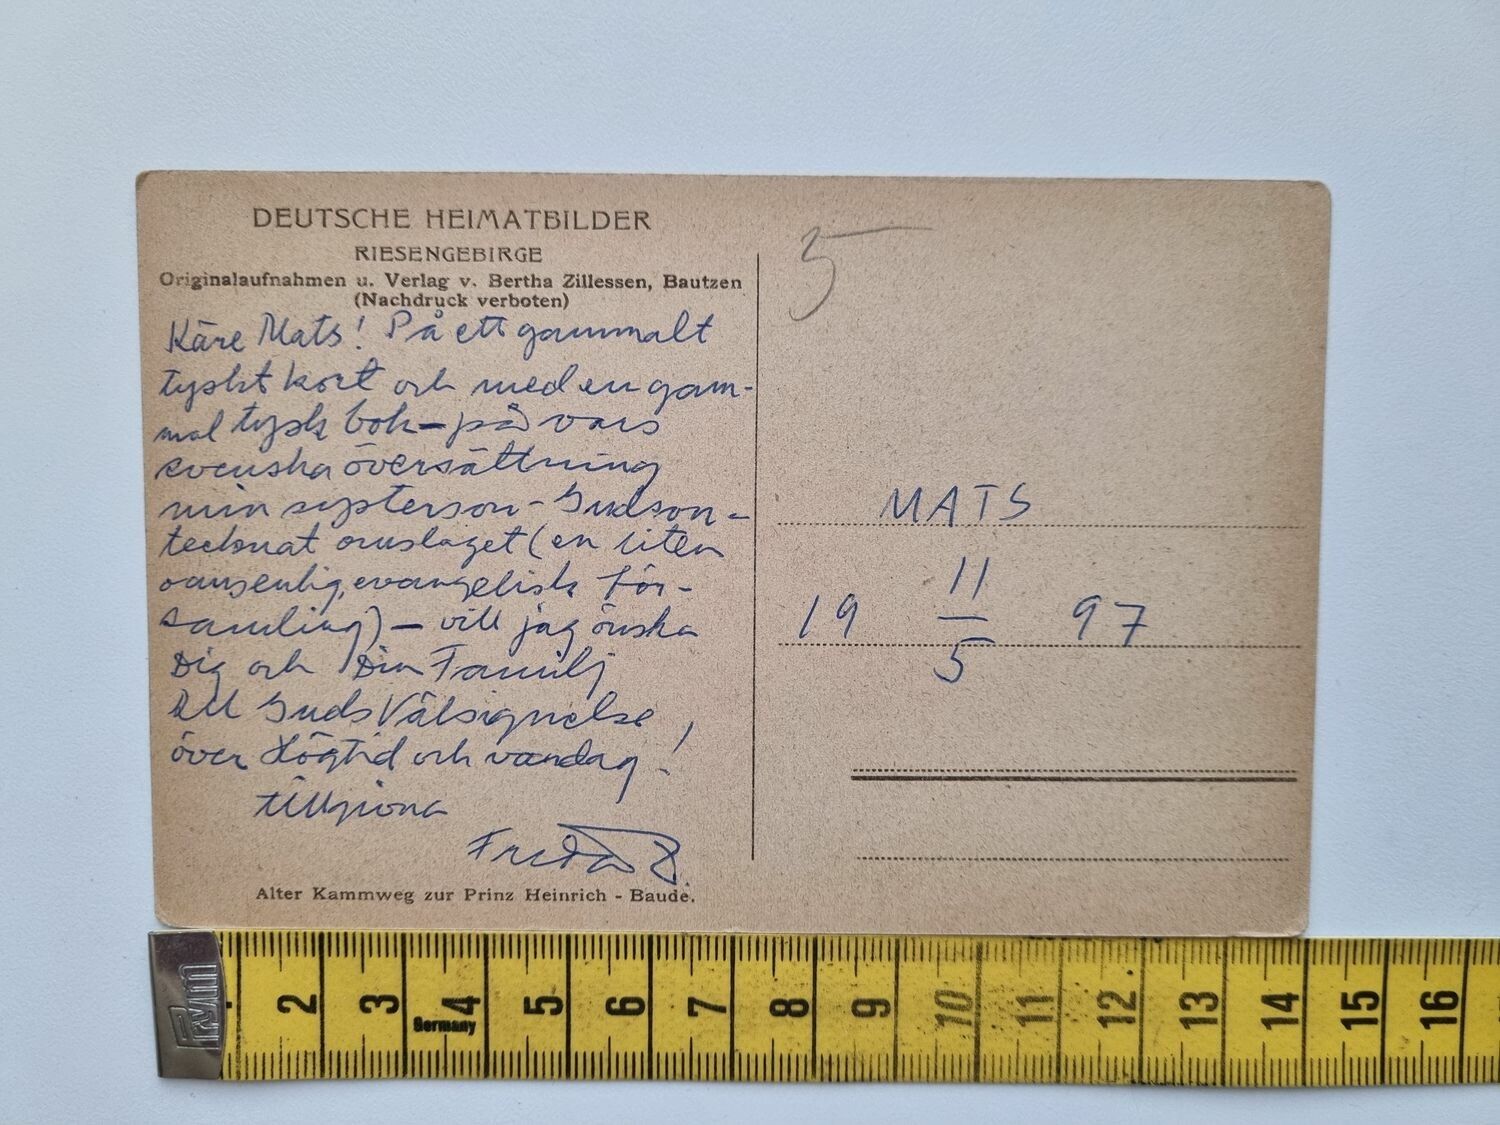 DEUTSCHE HEIMATBILDER
RIESENGEBIRGE
Originalaufnahmen u. Verlag v. Bertha Zillessen, Bautzen
(Nachdruck verboten)
Käre Mats! På ett gammalt
tyskt kort och med en gam-
mal tysk bok - på vars
svenska översättning
min systerson - Gudson -
tecknat omslaget (en liten
oansenlig, evangelisk för-
samling) - vill jag önska
Dig och Din Familj
All Guds Välsignelse
över Högtid och vardag!
tillgivna
Alter Kammweg zur Prinz Heinrich - Baude.
5
MATS
19 11/5 97
Prym
2 3 4 5 6 7 8 9 10 11 12 13 14 15 16
Germany